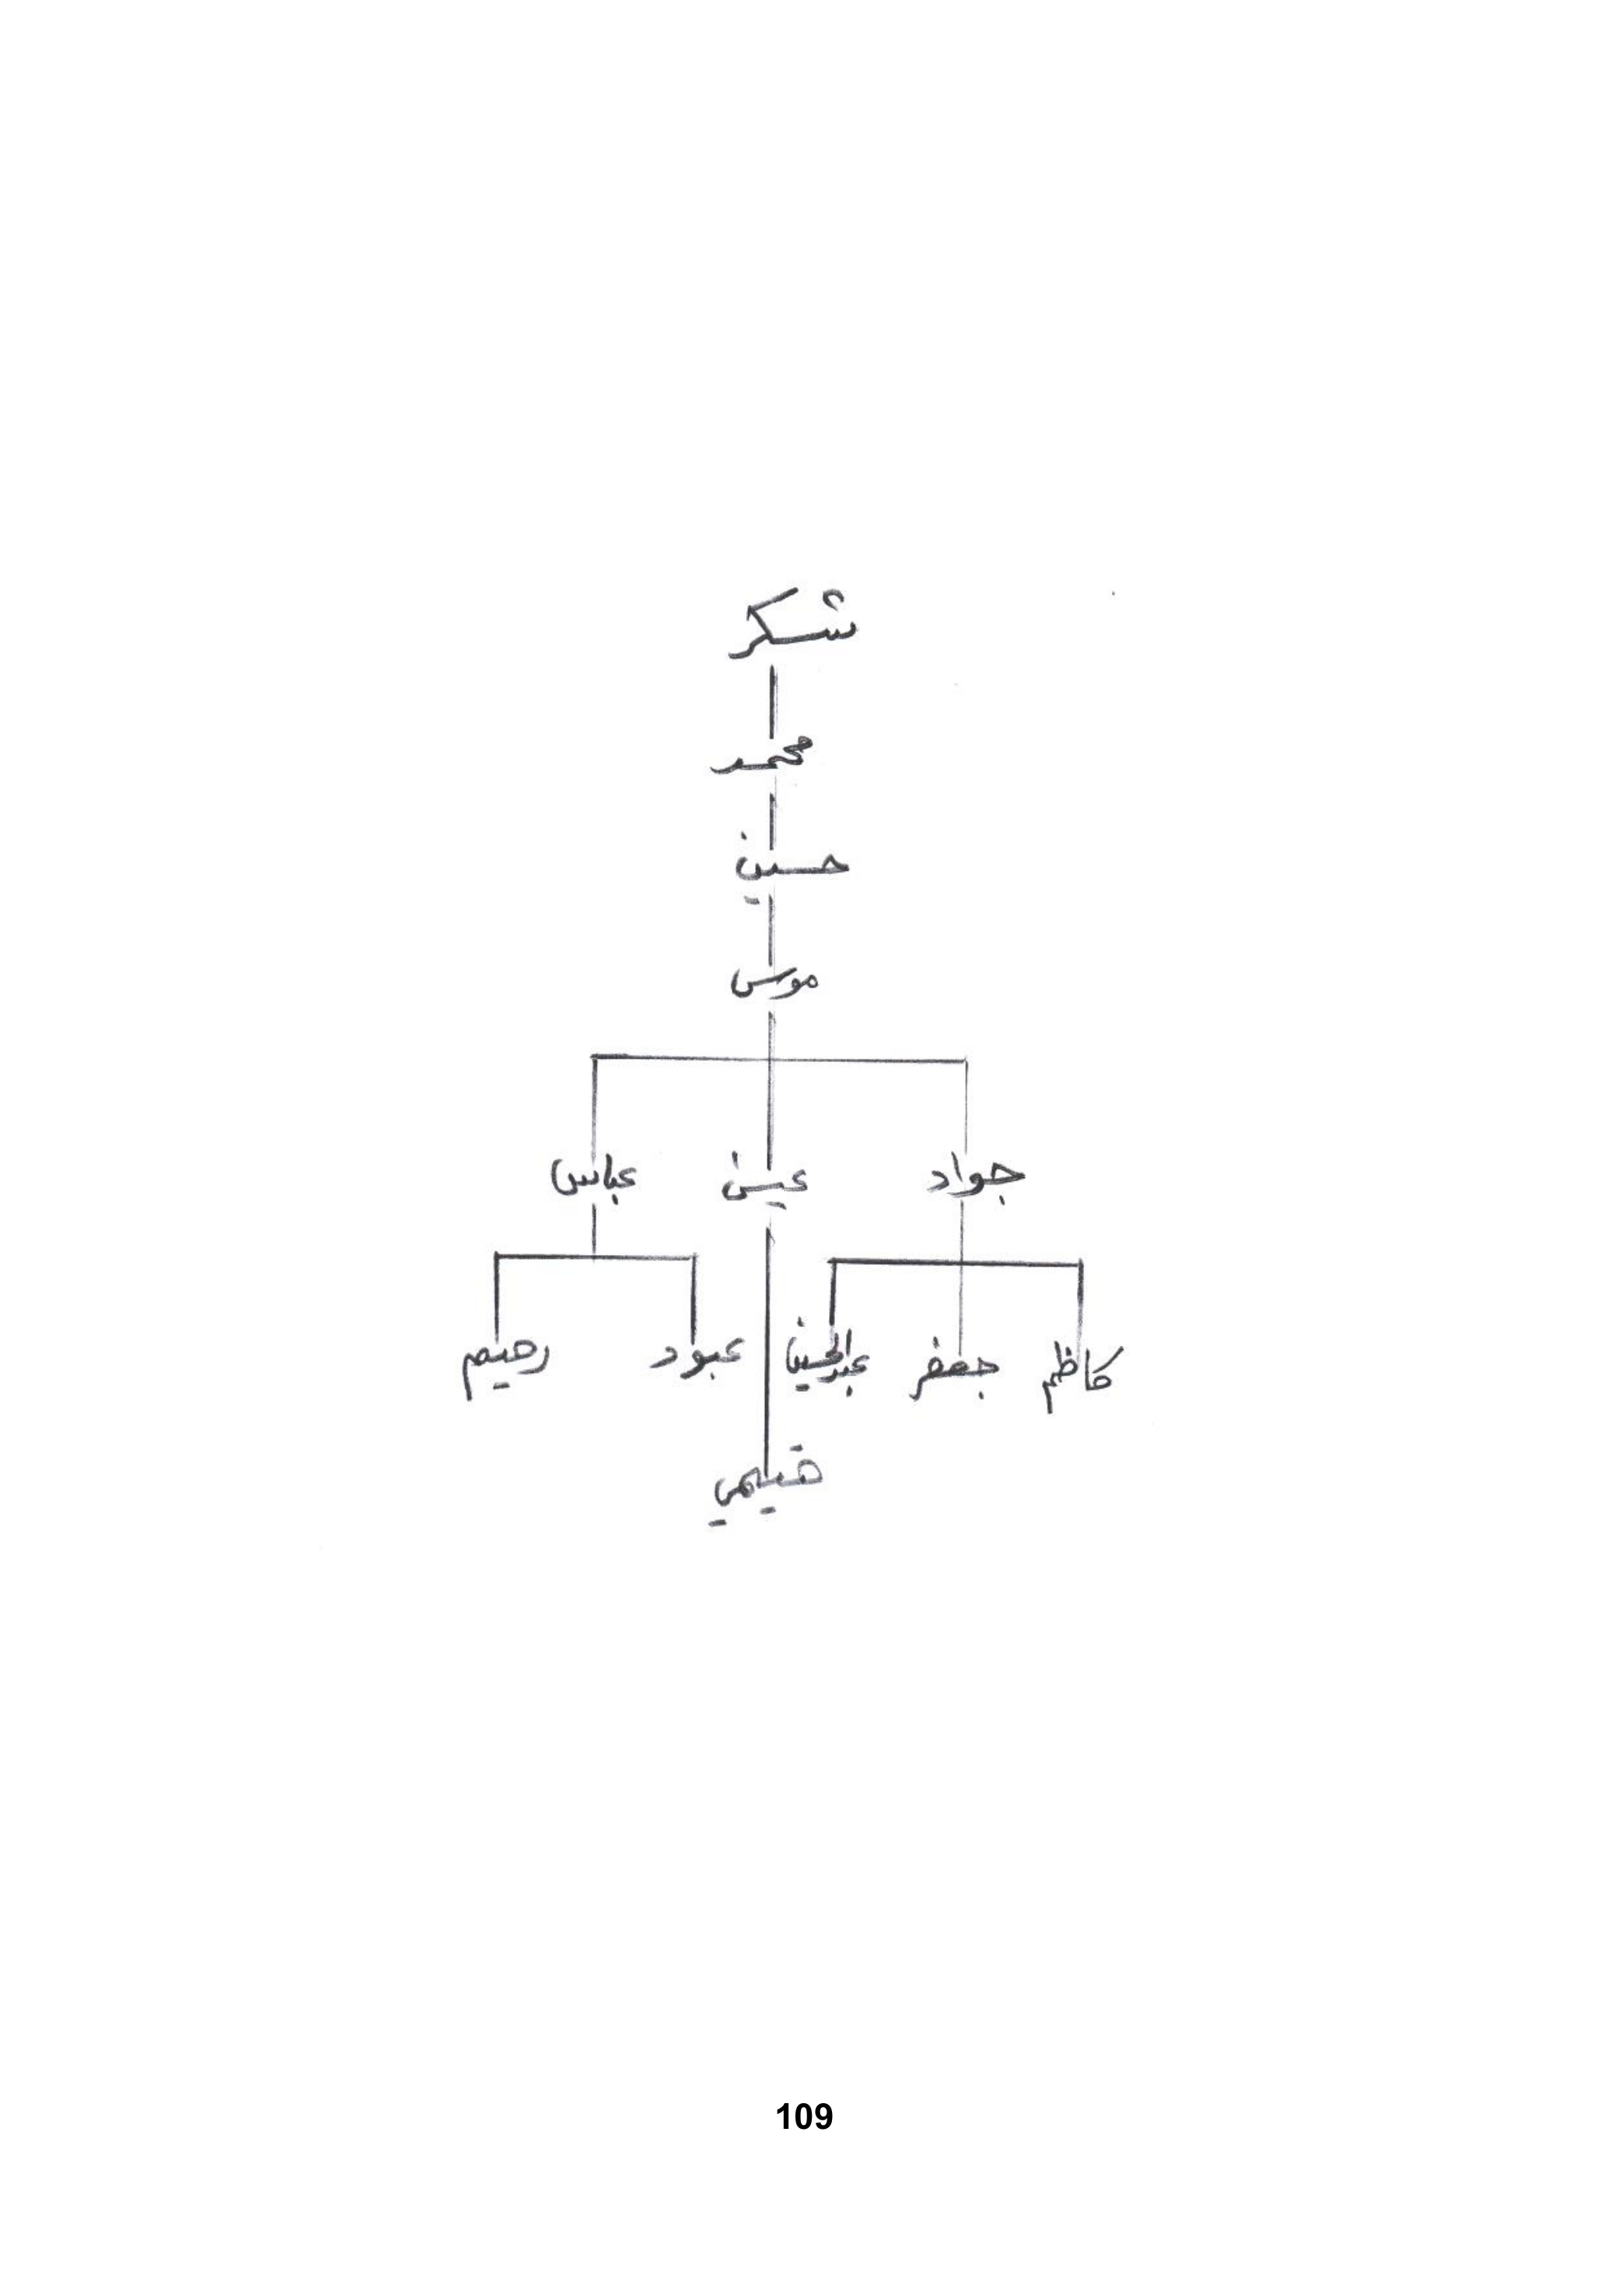 شكر
محمد
حسين
موسى
جواد عيسى عباس
كاظم جعفر عبدالحسين عبود رحيم
109